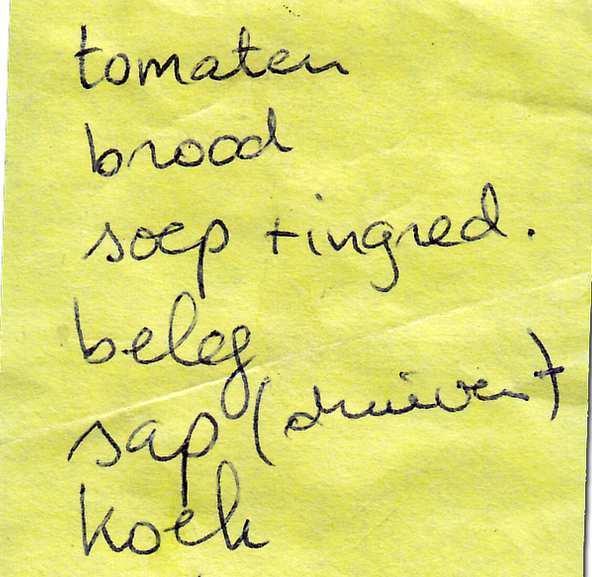 tomaten
brood
soep + ingred.
beleg
sap (druiven)
koek